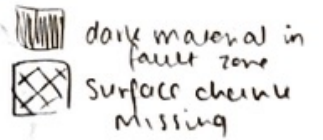 dark material in
fault zone
surface
missing